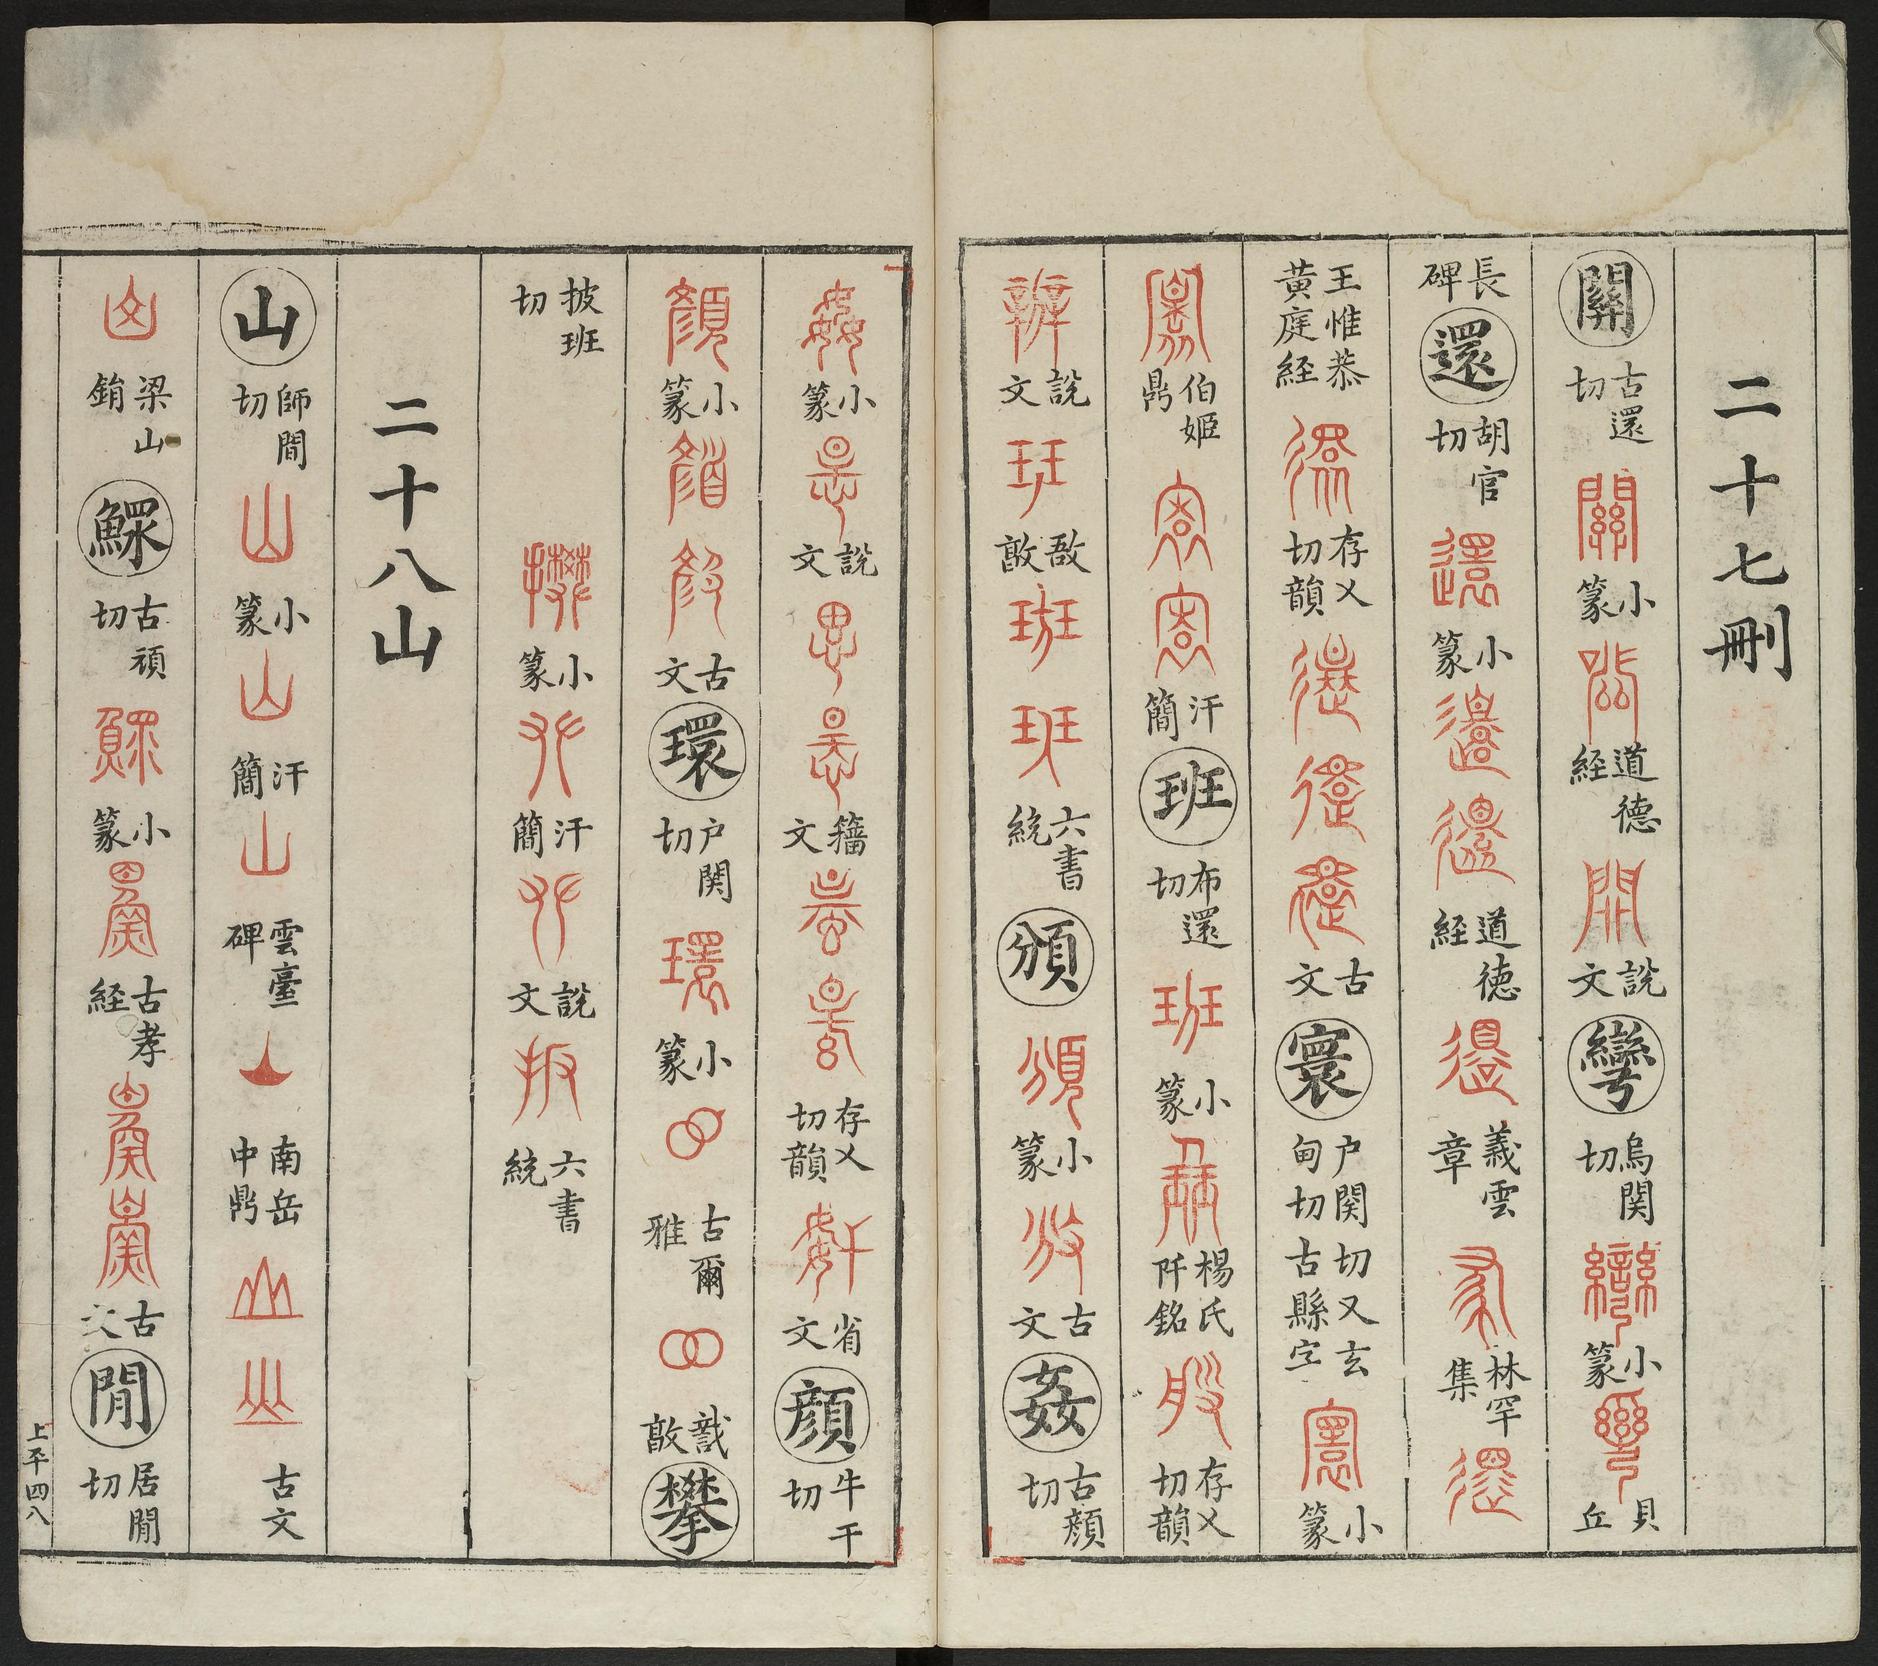 二十七刪
關 古還切 小篆 道德経 說文 彎 烏関切 小篆 貝丘
長碑 還 胡官切 小篆 道德経 義雲章 林罕集
王惟恭黃庭経 存乂切韻 古文 寰 户関切又玄甸切古縣字 小篆
伯姬鼎 汗簡 班 布還切 小篆 楊氏阡銘 存乂切韻
說文 敔敦 六書統 頒 小篆 古文 姦 古顏切
小篆 說文 籀文 存乂切韻 省文 顏 牛干切
小篆 古文 環 户関切 小篆 古爾雅 敦 攀
披班切 小篆 汗簡 說文 六書統
二十八山
山 師閒切 小篆 汗簡 雲臺碑 南岳中鼎 古文
梁山鋗 鰥 古頑切 小篆 古孝経 古文 閒 居閒切
上平四八